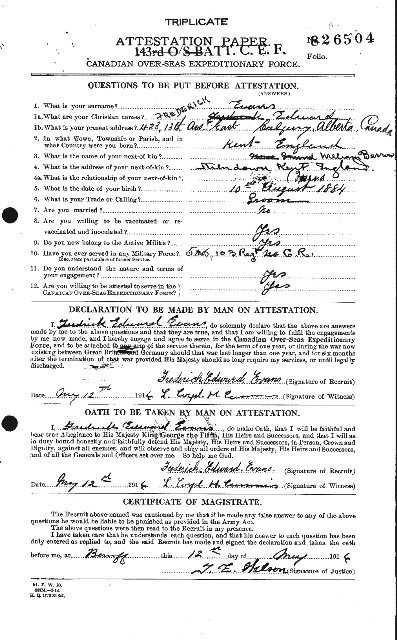 TRIPLICATE
ATTESTATION PAPER.
143rd O/S BATT. C. E. F.
826504
Folio.
CANADIAN OVER-SEAS EXPEDITIONARY FORCE.
QUESTIONS TO BE PUT BEFORE ATTESTATION.
(ANSWERS)
1. What is your surname? Evans
1a. What are your Christian names? FREDERICK Edward
1b. What is your present address? 423, 13th Ave East Calgary, Alberta, Canada
2. In what Town, Township or Parish, and in
what Country were you born? Kent England
3. What is the name of your next-of-kin?
4. What is the address of your next-of-kin? Kent England
4a. What is the relationship of your next-of-kin? Friend
5. What is the date of your birth? 10th August 1884
6. What is your Trade or Calling? Groom
7. Are you married? No
8. Are you willing to be vaccinated or re-
vaccinated and inoculated? Yes
9. Do you now belong to the Active Militia? Yes
10. Have you ever served in any Military Force? 103 Reg
If so, state particulars of former Service.
11. Do you understand the nature and terms of
your engagement? Yes
12. Are you willing to be attested to serve in the
CANADIAN OVER-SEAS EXPEDITIONARY FORCE? Yes
DECLARATION TO BE MADE BY MAN ON ATTESTATION.
I, Frederick Edward Evans, do solemnly declare that the above are answers
made by me to the above questions and that they are true, and that I am willing to fulfil the engagements
by me now made, and I hereby engage and agree to serve in the Canadian Over-Seas Expeditionary
Force, and to be attached to any arm of the service therein, for the term of one year, or during the war now
existing between Great Britain and Germany should that war last longer than one year, and for six months
after the termination of that war provided His Majesty should so long require my services, or until legally
discharged.
Frederick Edward Evans (Signature of Recruit)
Date May 12th 1916 L. Corpl. (Signature of Witness)
OATH TO BE TAKEN BY MAN ON ATTESTATION.
I, Frederick Edward Evans, do make Oath, that I will be faithful and
bear true Allegiance to His Majesty King George the Fifth, His Heirs and Successors, and that I will as
in duty bound honestly and faithfully defend His Majesty, His Heirs and Successors, in Person, Crown and
Dignity, against all enemies, and will observe and obey all orders of His Majesty, His Heirs and Successors,
and of all the Generals and Officers set over me. So help me God.
Frederick Edward Evans (Signature of Recruit)
Date May 12th 1916 L. Corpl. (Signature of Witness)
CERTIFICATE OF MAGISTRATE.
The Recruit above-named was cautioned by me that if he made any false answer to any of the above
questions he would be liable to be punished as provided in the Army Act.
The above questions were then read to the Recruit in my presence.
I have taken care that he understands each question, and that his answer to each question has been
duly entered as replied to, and the said Recruit has made and signed the declaration and taken the oath
before me, at Banff this 12th day of May 1916
Wilson (Signature of Justice)